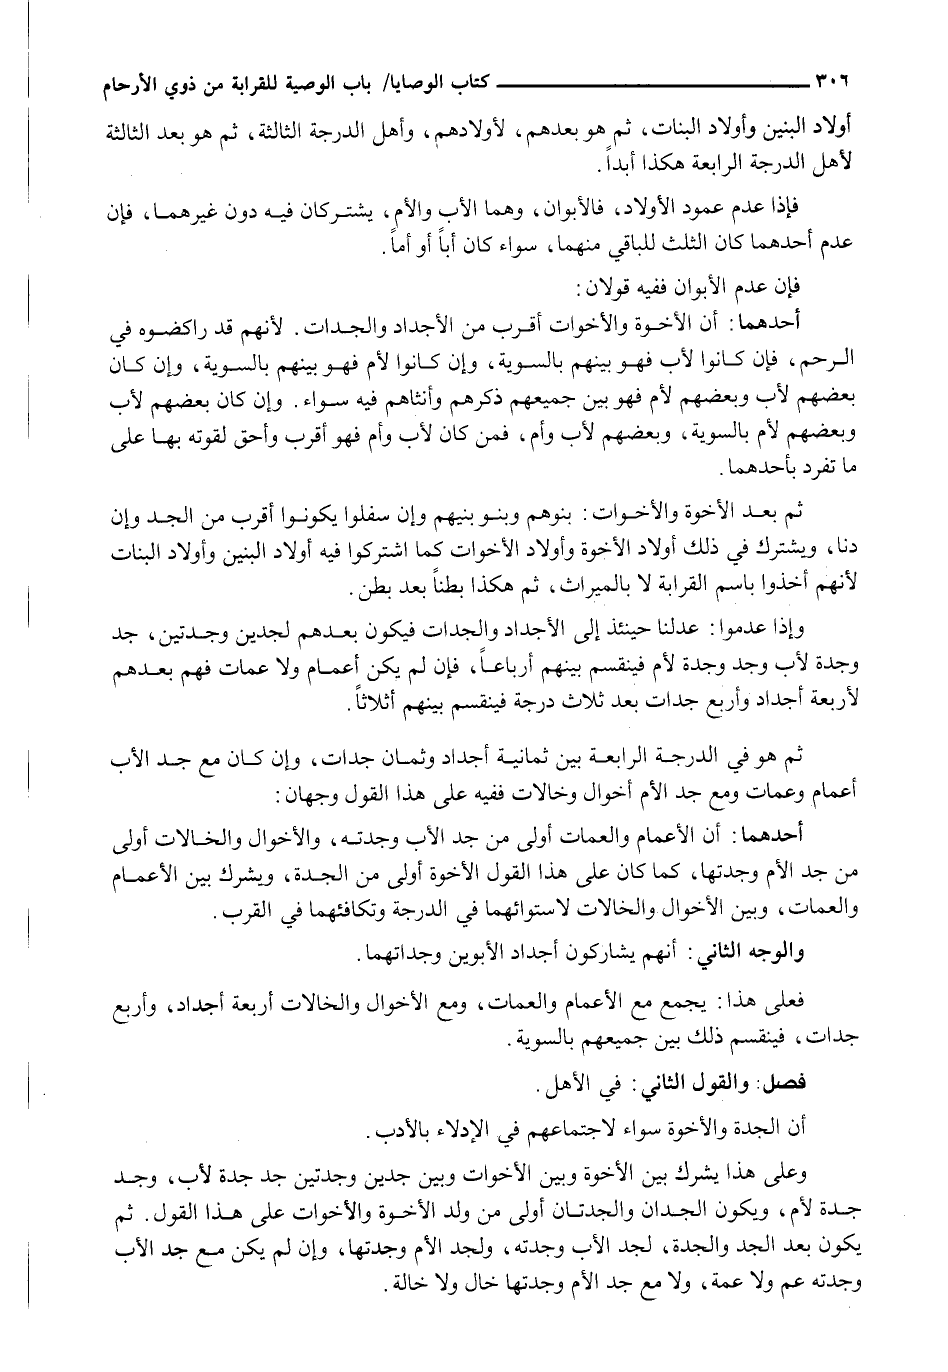 ٣٠٦ ــــــــــــــــــــ كتاب الوصايا/ باب الوصية للقرابة من ذوي الأرحام
أولاد البنين وأولاد البنات، ثم هو بعدهم، لأولادهم، وأهل الدرجة الثالثة، ثم هو بعد الثالثة
لأهل الدرجة الرابعة هكذا أبداً.
فإذا عدم عمود الأولاد، فالأبوان، وهما الأب والأم، يشتركان فيه دون غيرهما، فإن
عدم أحدهما كان الثلث للباقي منهما، سواء كان أباً أو أماً.
فإن عدم الأبوان ففيه قولان:
أحدهما: أن الأخوة والأخوات أقرب من الأجداد والجدات. لأنهم قد راكضوه في
الرحم، فإن كانوا لأب فهو بينهم بالسوية، وإن كانوا لأم فهو بينهم بالسوية، وإن كان
بعضهم لأب وبعضهم لأم فهو بين جميعهم ذكرهم وأنثاهم فيه سواء. وإن كان بعضهم لأب
وبعضهم لأم بالسوية، وبعضهم لأب وأم، فمن كان لأب وأم فهو أقرب وأحق لقوته بها على
ما تفرد بأحدهما.
ثم بعد الأخوة والأخوات: بنوهم وبنو بنيهم وإن سفلوا يكونوا أقرب من الجد وإن
دنا، ويشترك في ذلك أولاد الأخوة وأولاد الأخوات كما اشتركوا فيه أولاد البنين وأولاد البنات
لأنهم أخذوا باسم القرابة لا بالميراث، ثم هكذا بطناً بعد بطن.
وإذا عدموا: عدلنا حينئذ إلى الأجداد والجدات فيكون بعدهم لجدين وجدتين، جد
وجدة لأب وجد وجدة لأم فينقسم بينهم أرباعاً، فإن لم يكن أعمام ولا عمات فهم بعدهم
لأربعة أجداد وأربع جدات بعد ثلاث درجة فينقسم بينهم أثلاثاً.
ثم هو في الدرجة الرابعة بين ثمانية أجداد وثمان جدات، وإن كان مع جد الأب
أعمام وعمات ومع جد الأم أخوال وخالات ففيه على هذا القول وجهان:
أحدهما: أن الأعمام والعمات أولى من جد الأب وجدته، والأخوال والخالات أولى
من جد الأم وجدتها، كما كان على هذا القول الأخوة أولى من الجدة، ويشرك بين الأعمام
والعمات، وبين الأخوال والخالات لاستوائهما في الدرجة وتكافئهما في القرب.
والوجه الثاني: أنهم يشاركون أجداد الأبوين وجداتهما.
فعلى هذا: يجمع مع الأعمام والعمات، ومع الأخوال والخالات أربعة أجداد، وأربع
جدات، فينقسم ذلك بين جميعهم بالسوية.
فصل: والقول الثاني: في الأهل.
أن الجدة والأخوة سواء لاجتماعهم في الإدلاء بالأدب.
وعلى هذا يشرك بين الأخوة وبين الأخوات وبين جدين وجدتين جد جدة لأب، وجد
جدة لأم، ويكون الجدان والجدتان أولى من ولد الأخوة والأخوات على هذا القول. ثم
يكون بعد الجد والجدة، لجد الأب وجدته، ولجد الأم وجدتها، وإن لم يكن مع جد الأب
وجدته عم ولا عمة، ولا مع جد الأم وجدتها خال ولا خالة.